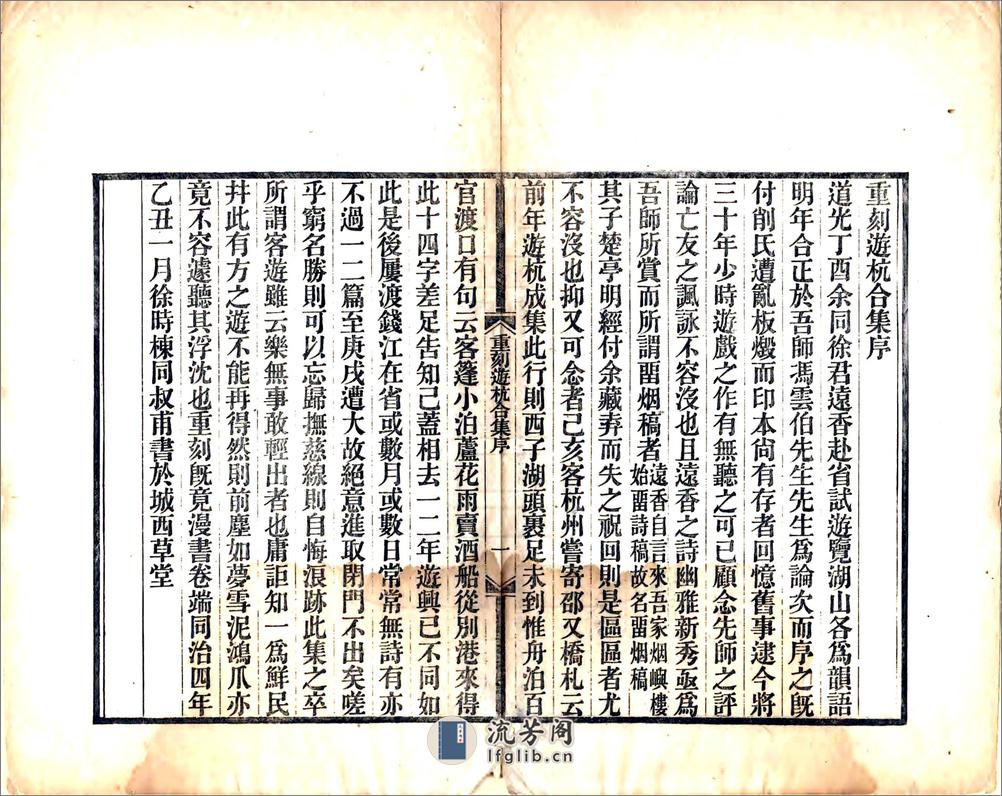 重刻遊杭合集序
道光丁酉余同徐君遠香赴省試遊覽湖山各為韻語
明年合正於吾師馮雲伯先生先生為論次而序之旣
付削氏遭亂板燬而印本尙有存者回憶舊事逮今將
三十年少時遊戲之作有無聽之可已顧念先師之評
論亡友之諷詠不容沒也且遠香之詩幽雅新秀亟為
吾師所賞而所謂畱烟稿者遠香自言來吾家烟嶼樓始畱詩稿故名畱烟稿
其子楚亭明經付余藏弆而失之祝回則是區區者尤
不容沒也抑又可念者己亥客杭州嘗寄邵又橋札云
前年遊杭成集此行則西子湖頭裹足未到惟舟泊百
官渡口有句云客篷小泊蘆花雨賣酒船從別港來得
此十四字差足告知己蓋相去一二年遊興已不同如
此是後屢渡錢江在省或數月或數日常常無詩有亦
不過一二篇至庚戌遭大故絕意進取閉門不出矣嗟
乎窮名勝則可以忘歸撫慈線則自悔浪跡此集之卒
所謂客遊雖云樂無事敢輕出者也庸詎知一為鮮民
幷此有方之遊不能再得然則前塵如夢雪泥鴻爪亦
竟不容遽聽其浮沈也重刻旣竟漫書卷端同治四年
乙丑一月徐時棟同叔甫書於城西草堂
重刻遊杭合集序
一
流芳阁
lfglib.cn